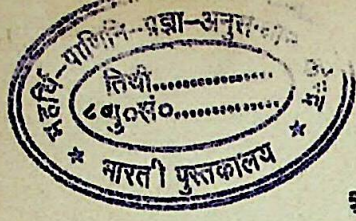 महर्षि-पाणिनि-प्रज्ञा-अनुसन्धान
तिथी...............
पु०सं०...............
* भारती पुस्तकालय *